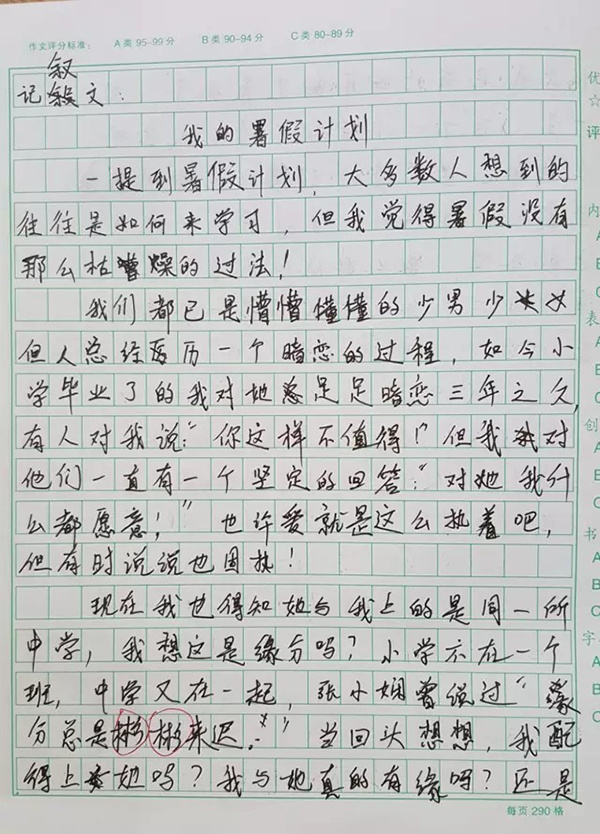 作文评分标准: A 类 95-99 分 B 类 90-94 分 C 类 80-89 分
叙
记 文:
我的暑假计划
一提到暑假计划,大多数人想到的
往往是如何来学习,但我觉得暑假没有
那么枯燥的过法!
我们都已是懵懵懂懂的少男少女
但人总经历一个暗恋的过程,如今小
学毕业了的我对她总足足暗恋三年之久,
有人对我说:“你这样不值得!”但我对
他们一直有一个坚定的回答:“对她我什
么都愿意!”也许爱就是这么执着吧,
但有时说说也固执!
现在我也得知她与我上的是同一所
中学,我想这是缘分吗?小学不在一个
班,中学又在一起,张小娴曾说过“缘
分总是彬彬来迟.”当回头想想,我配
得上她吗?我与她真的有缘吗?还是
每页 290 格
优
☆
评
内
A
B
C
表
A
B
C
创
A
B
C
书
A
B
C
字
A
B